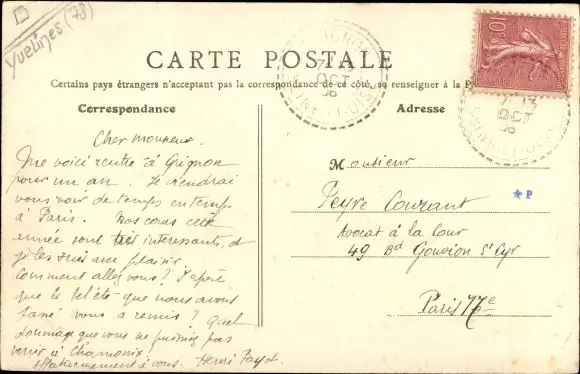 Yvelines (78)
CARTE POSTALE
Certains pays étrangers n'acceptant pas la correspondance de ce côté, se renseigner à la P
Correspondance
Adresse
GRIGNON
7-13
OCT
06
SEINE-ET-OISE
10
Cher monsieur.
Me voici rentré à Grignon
pour un an. Je viendrai
vous voir de temps en temps
à Paris. Nos cours cette
année sont très intéressants, et
je les suis avec plaisir
Comment allez vous? J'espère
que le bel été que nous avons
passé vous a remis? Quel
dommage que vous ne puissiez pas
venir à Chamonix!
Affectueusement à vous. Henri Payot.
Monsieur
Peyre Courant
Avocat à la Cour
49 Bd Gouvion St Cyr
Paris 17e
★P